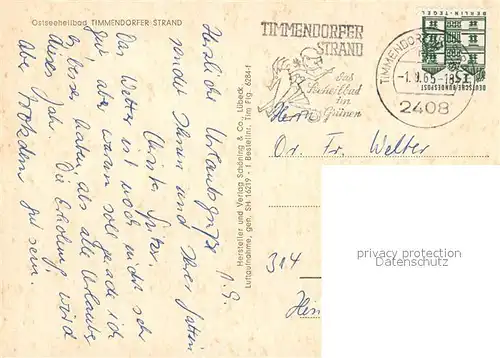 Ostseeheilbad TIMMENDORFER STRAND
1.9.
Herzliche Urlaubsgrüße
sendet Ihnen und Ihrer Gattin
Christa
Das Wetter ist noch nicht sehr
gut, aber warum soll gerade ich
es besser haben, als alle Urlauber
dieses Jahr. Die Erholung wird
aber trotzdem gut sein.
Hersteller und Verlag Schöning & Co., Lübeck
Luftaufnahme, gen. SH 16219 - 1 Bestellnr. Tim Flg 6284-1
TIMMENDORFER
STRAND
das
Seeheilbad
im
Grünen
TIMMENDORFER
-1.9.65-18
2408
BERLIN-TEGEL
15
DEUTSCHE BUNDESPOST
Herrn
Dr. Fr. Welter
314
privacy protection
Datenschutz